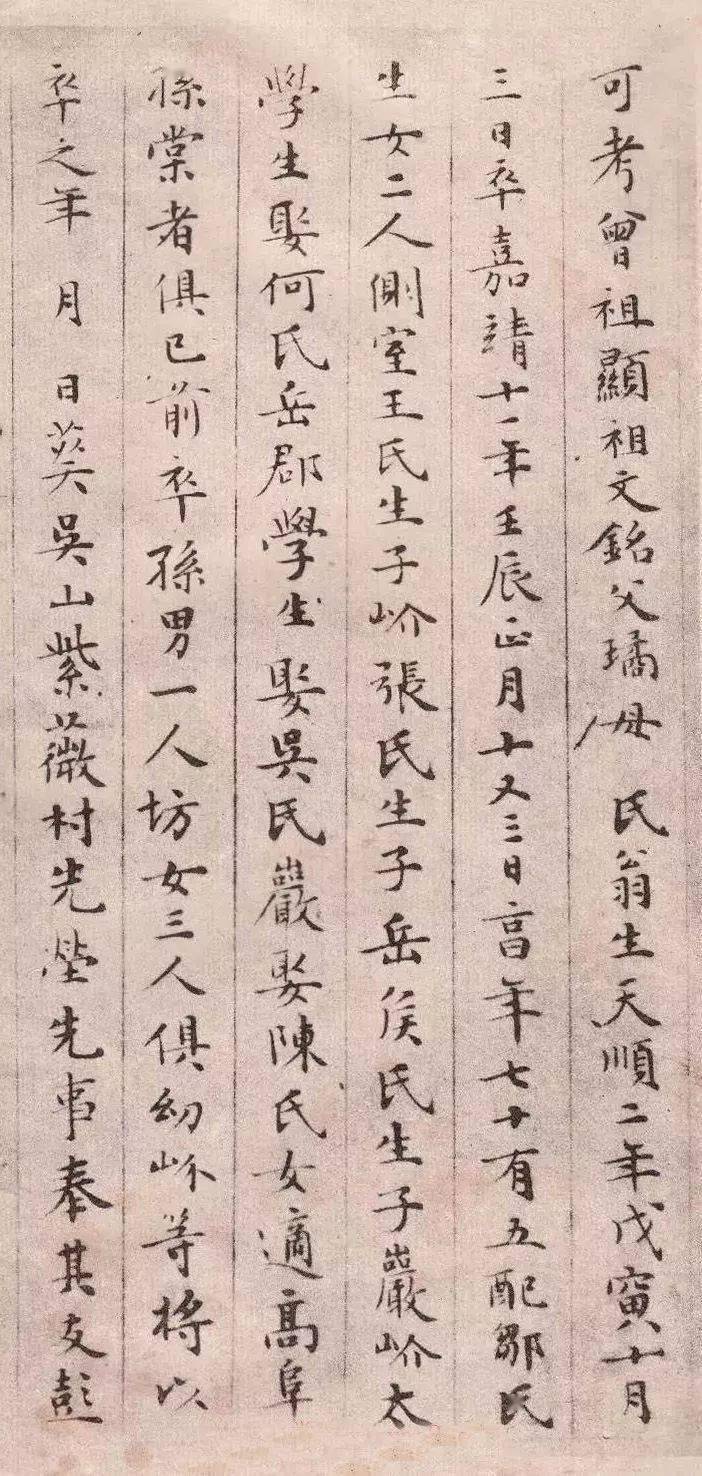 可考曾祖顯祖文銘父璚母　氏翁生天順二年戊寅十月
三日卒嘉靖十一年壬辰正月十又三日高年七十有五配鄒氏
生女二人側室王氏生子岕張氏生子岳侯氏生子巖岕太
學生娶何氏岳郡學生娶吳氏巖娶陳氏女適高阜
孫棠者俱已前卒孫男一人坊女三人俱幼岕等將以
卒之年　月　日葬吳山紫薇村先塋先事奉其友彭